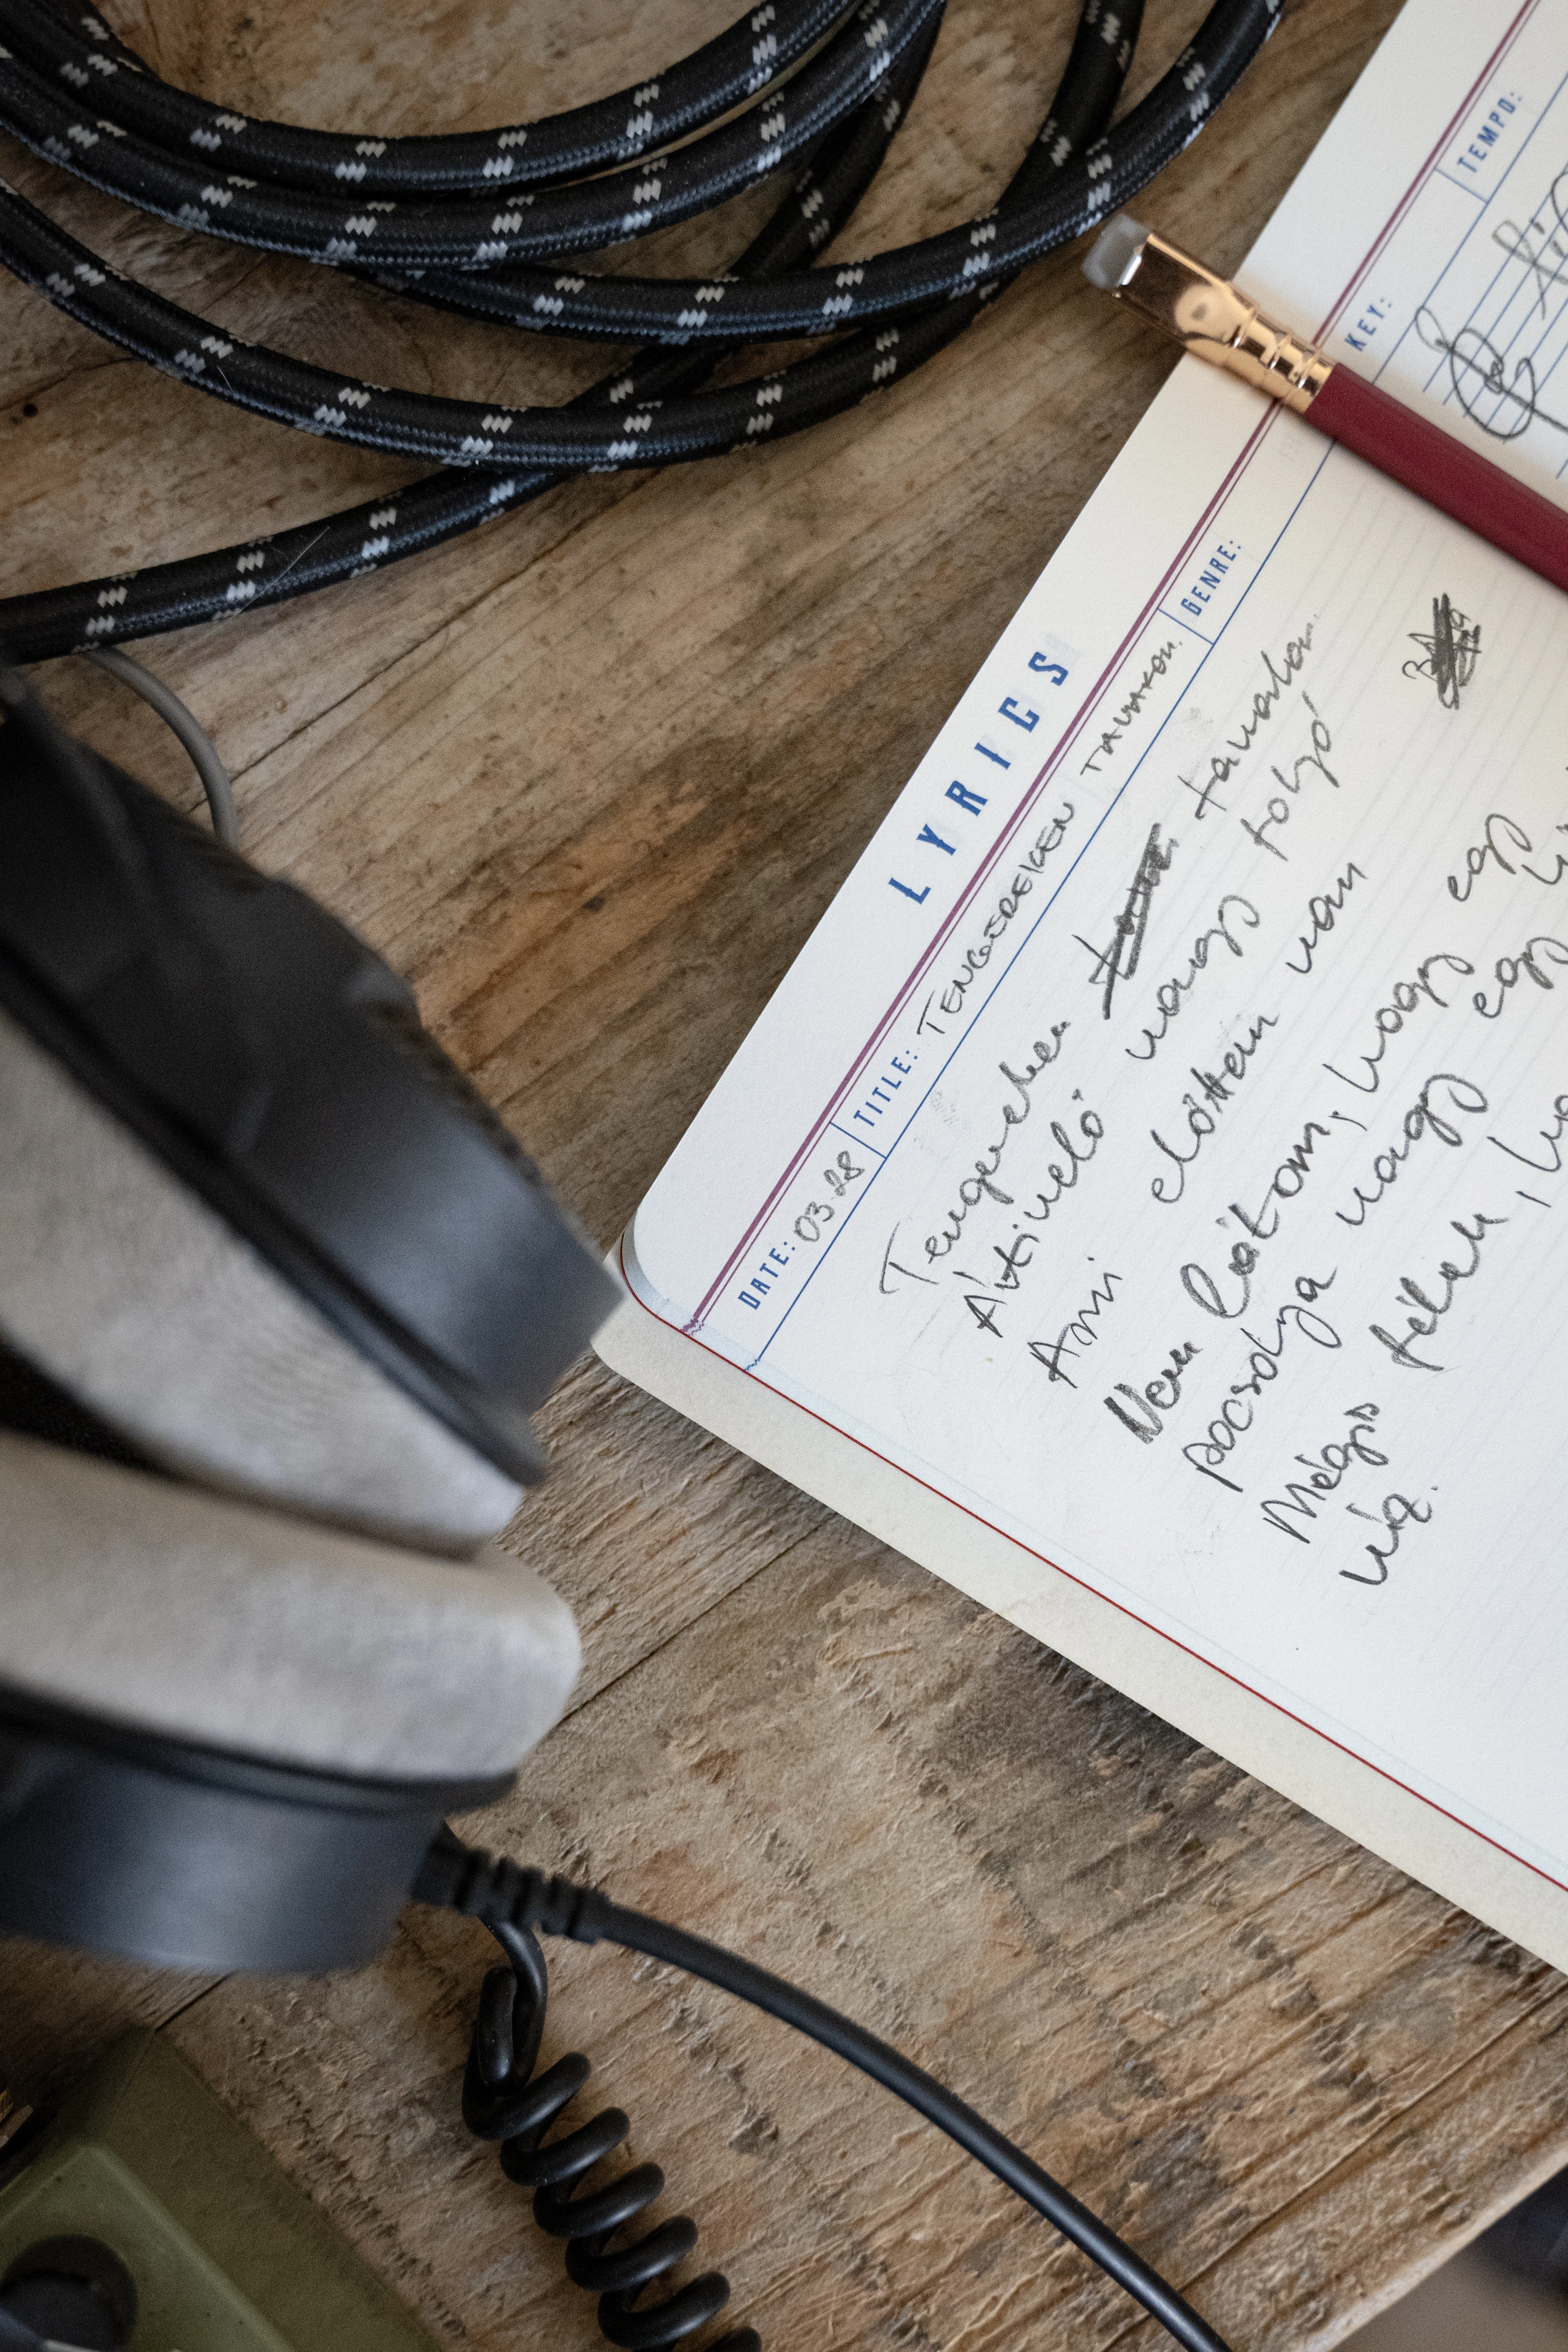 TEMPO:
KEY:
LYRICS
DATE: 03.28 TITLE: TENGEREKEN TAVAKON. GENRE:
Tengereken tavakon
Átívelő vagy folyó
Ami előttem van
Nem látom, hogy egy
pocsolya vagy egy
Mégis félek,
víz.